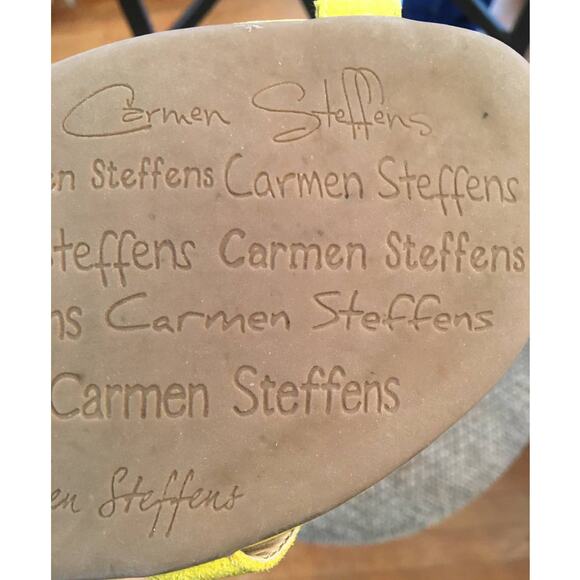 Carmen Steffens
n Steffens Carmen Steffens
teffens Carmen Steffens
ns Carmen Steffens
Carmen Steffens
en Steffens